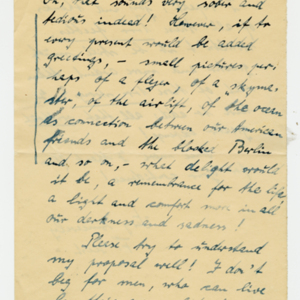 Oh, that sounds very sober and
tedious indeed! However, if to
every present would be added
greetings, – small pictures per-
haps of a flyer, of a skymas-
ter, of the airlift, of the ocean
as connection between our American
friends and the blocked Berlin
and so on, – what delight would
it be, a remembrance for the life,
a light and comfort in all
our darkness and sadness!
Please try to understand
my proposal well! I don't
beg for men, who can live